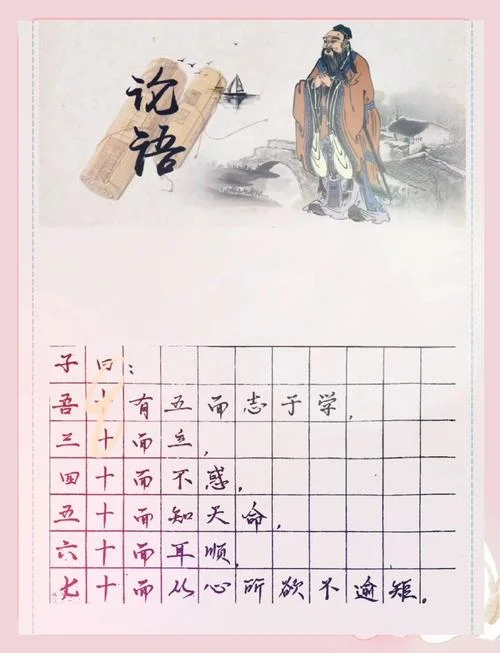 论语
子曰:
吾十有五面志于学,
三十面立,
四十面不惑,
五十面知天命,
六十面耳顺,
七十面从心所欲不逾短.